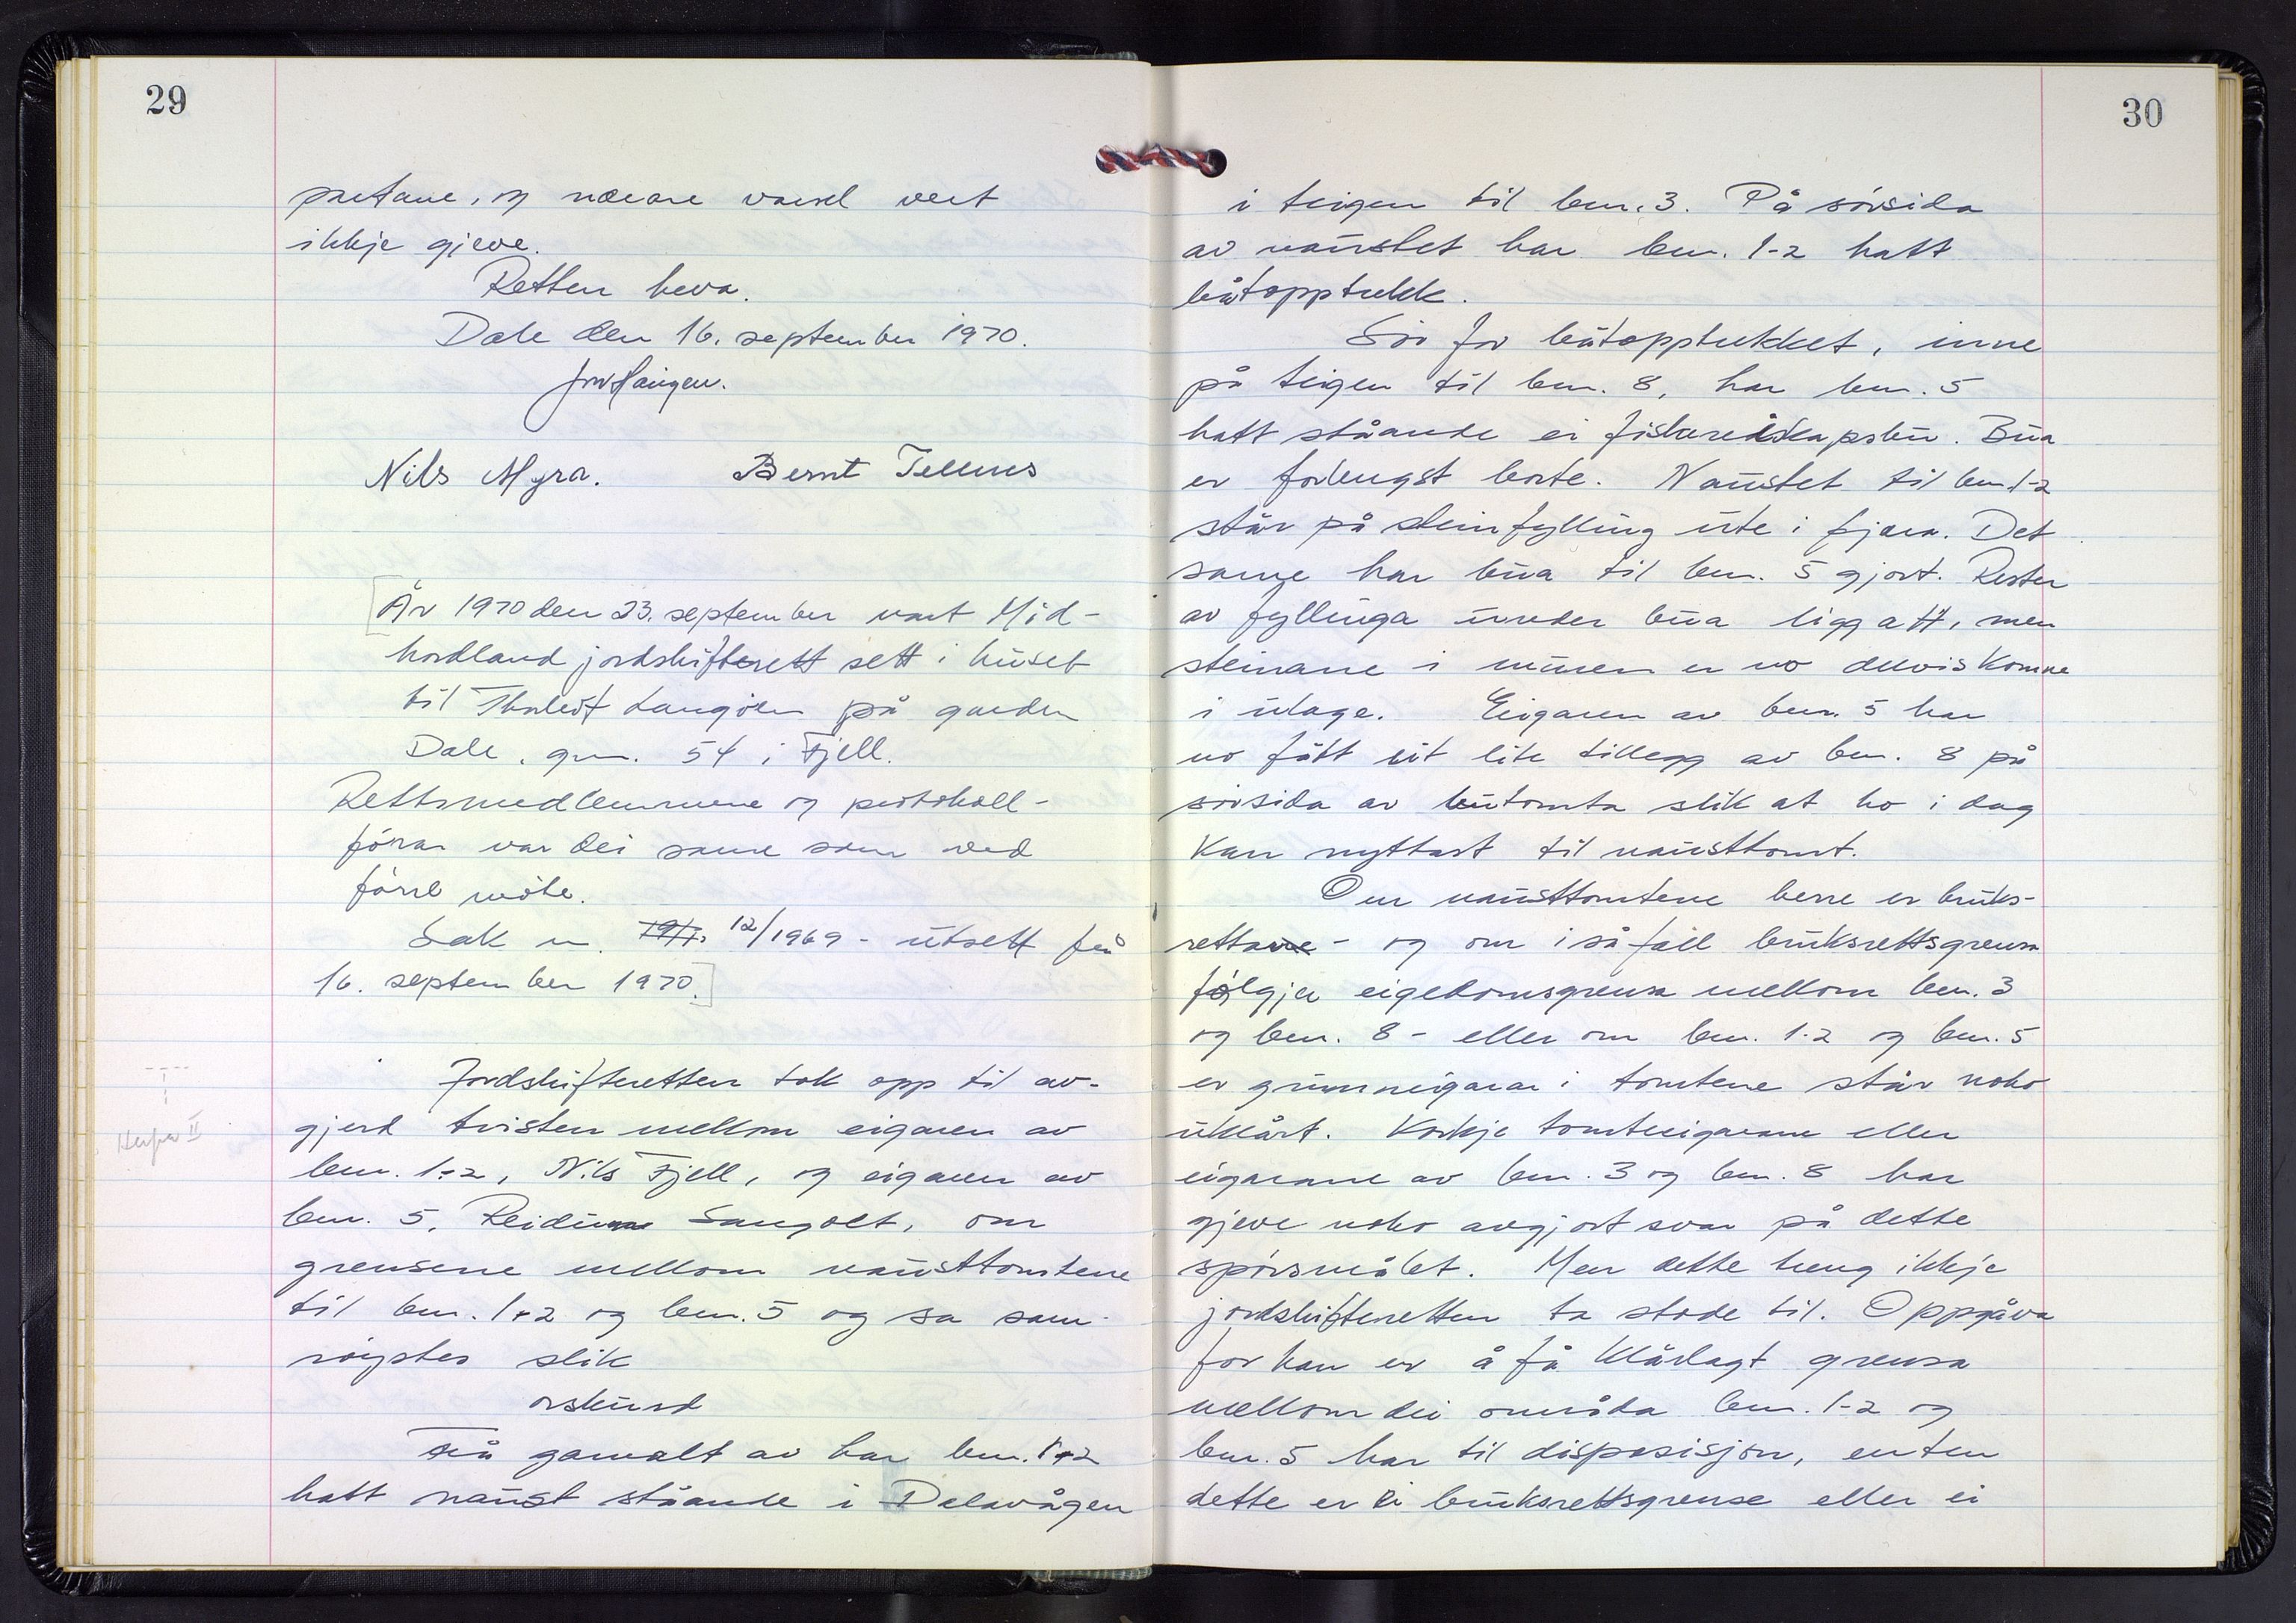 29
partane, og nærare varsel vert
ikkje gjeve.
Retten heva.
Dale den 16. september 1970.
Nils Myra. Bernt Tellnes
[År 1970 den 23. september vart Mid-
hordland jordskifterett sett i huset
til Thorleif Langöen på garden
Dale, gnr. 54 i Fjell.
Rettsmedlemmene og protokoll-
förar var dei same som ved
förre möte.
Sak nr. 12/1969 - utsett frå
16. september 1970.]
Jordskifteretten tok opp til av-
gjerd tvisten mellom eigaren av
bnr. 1+2, Nils Fjell, og eigaren av
bnr. 5, Reidun Sangolt, om
grensene mellom nausttomtene
til bnr. 1+2 og bnr. 5 og sa sam-
röystes slik
orskurd
Frå gamalt av har bnr. 1+2
hatt naust ståande i Dalevågen
30
i teigen til bnr. 3. På sörsida
av naustet har bnr. 1-2 hatt
båtopptrekk.
Sör for båtopptrekket, inne
på teigen til bnr. 8, har bnr. 5
hatt ståande ei fiskereidskapsbu. Bua
er forlengst borte. Naustet til bnr. 1-2
står på steinfylling ute i fjæra. Det
same har bua til bnr. 5 gjort. Rester
av fyllinga under bua ligg att, men
steinane i muren er no delvis komne
i ulage. Eigaren av bnr. 5 har
no fått eit lite tillegg av bnr. 8 på
sörsida av butomta slik at ho i dag
kan nyttast til nausttomt.
Om nausttomtene berre er bruks-
rettar - og om i så fall bruksrettsgrensa
fölgjer eigedomsgrensa mellom bnr. 3
og bnr. 8 - eller om bnr. 1-2 og bnr. 5
er grunneigarar i tomtene står noko
uklårt. Korkje tomteeigarane eller
eigarane av bnr. 3 og bnr. 8 har
gjeve noko avgjort svar på dette
spörsmålet. Men dette treng ikkje
jordskifteretten ta stode til. Oppgåva
for han er å få klårlagt grensa
mellom dei områda bnr. 1-2 og
bnr. 5 har til disposisjon, enten
dette er ei bruksrettsgrense eller ei